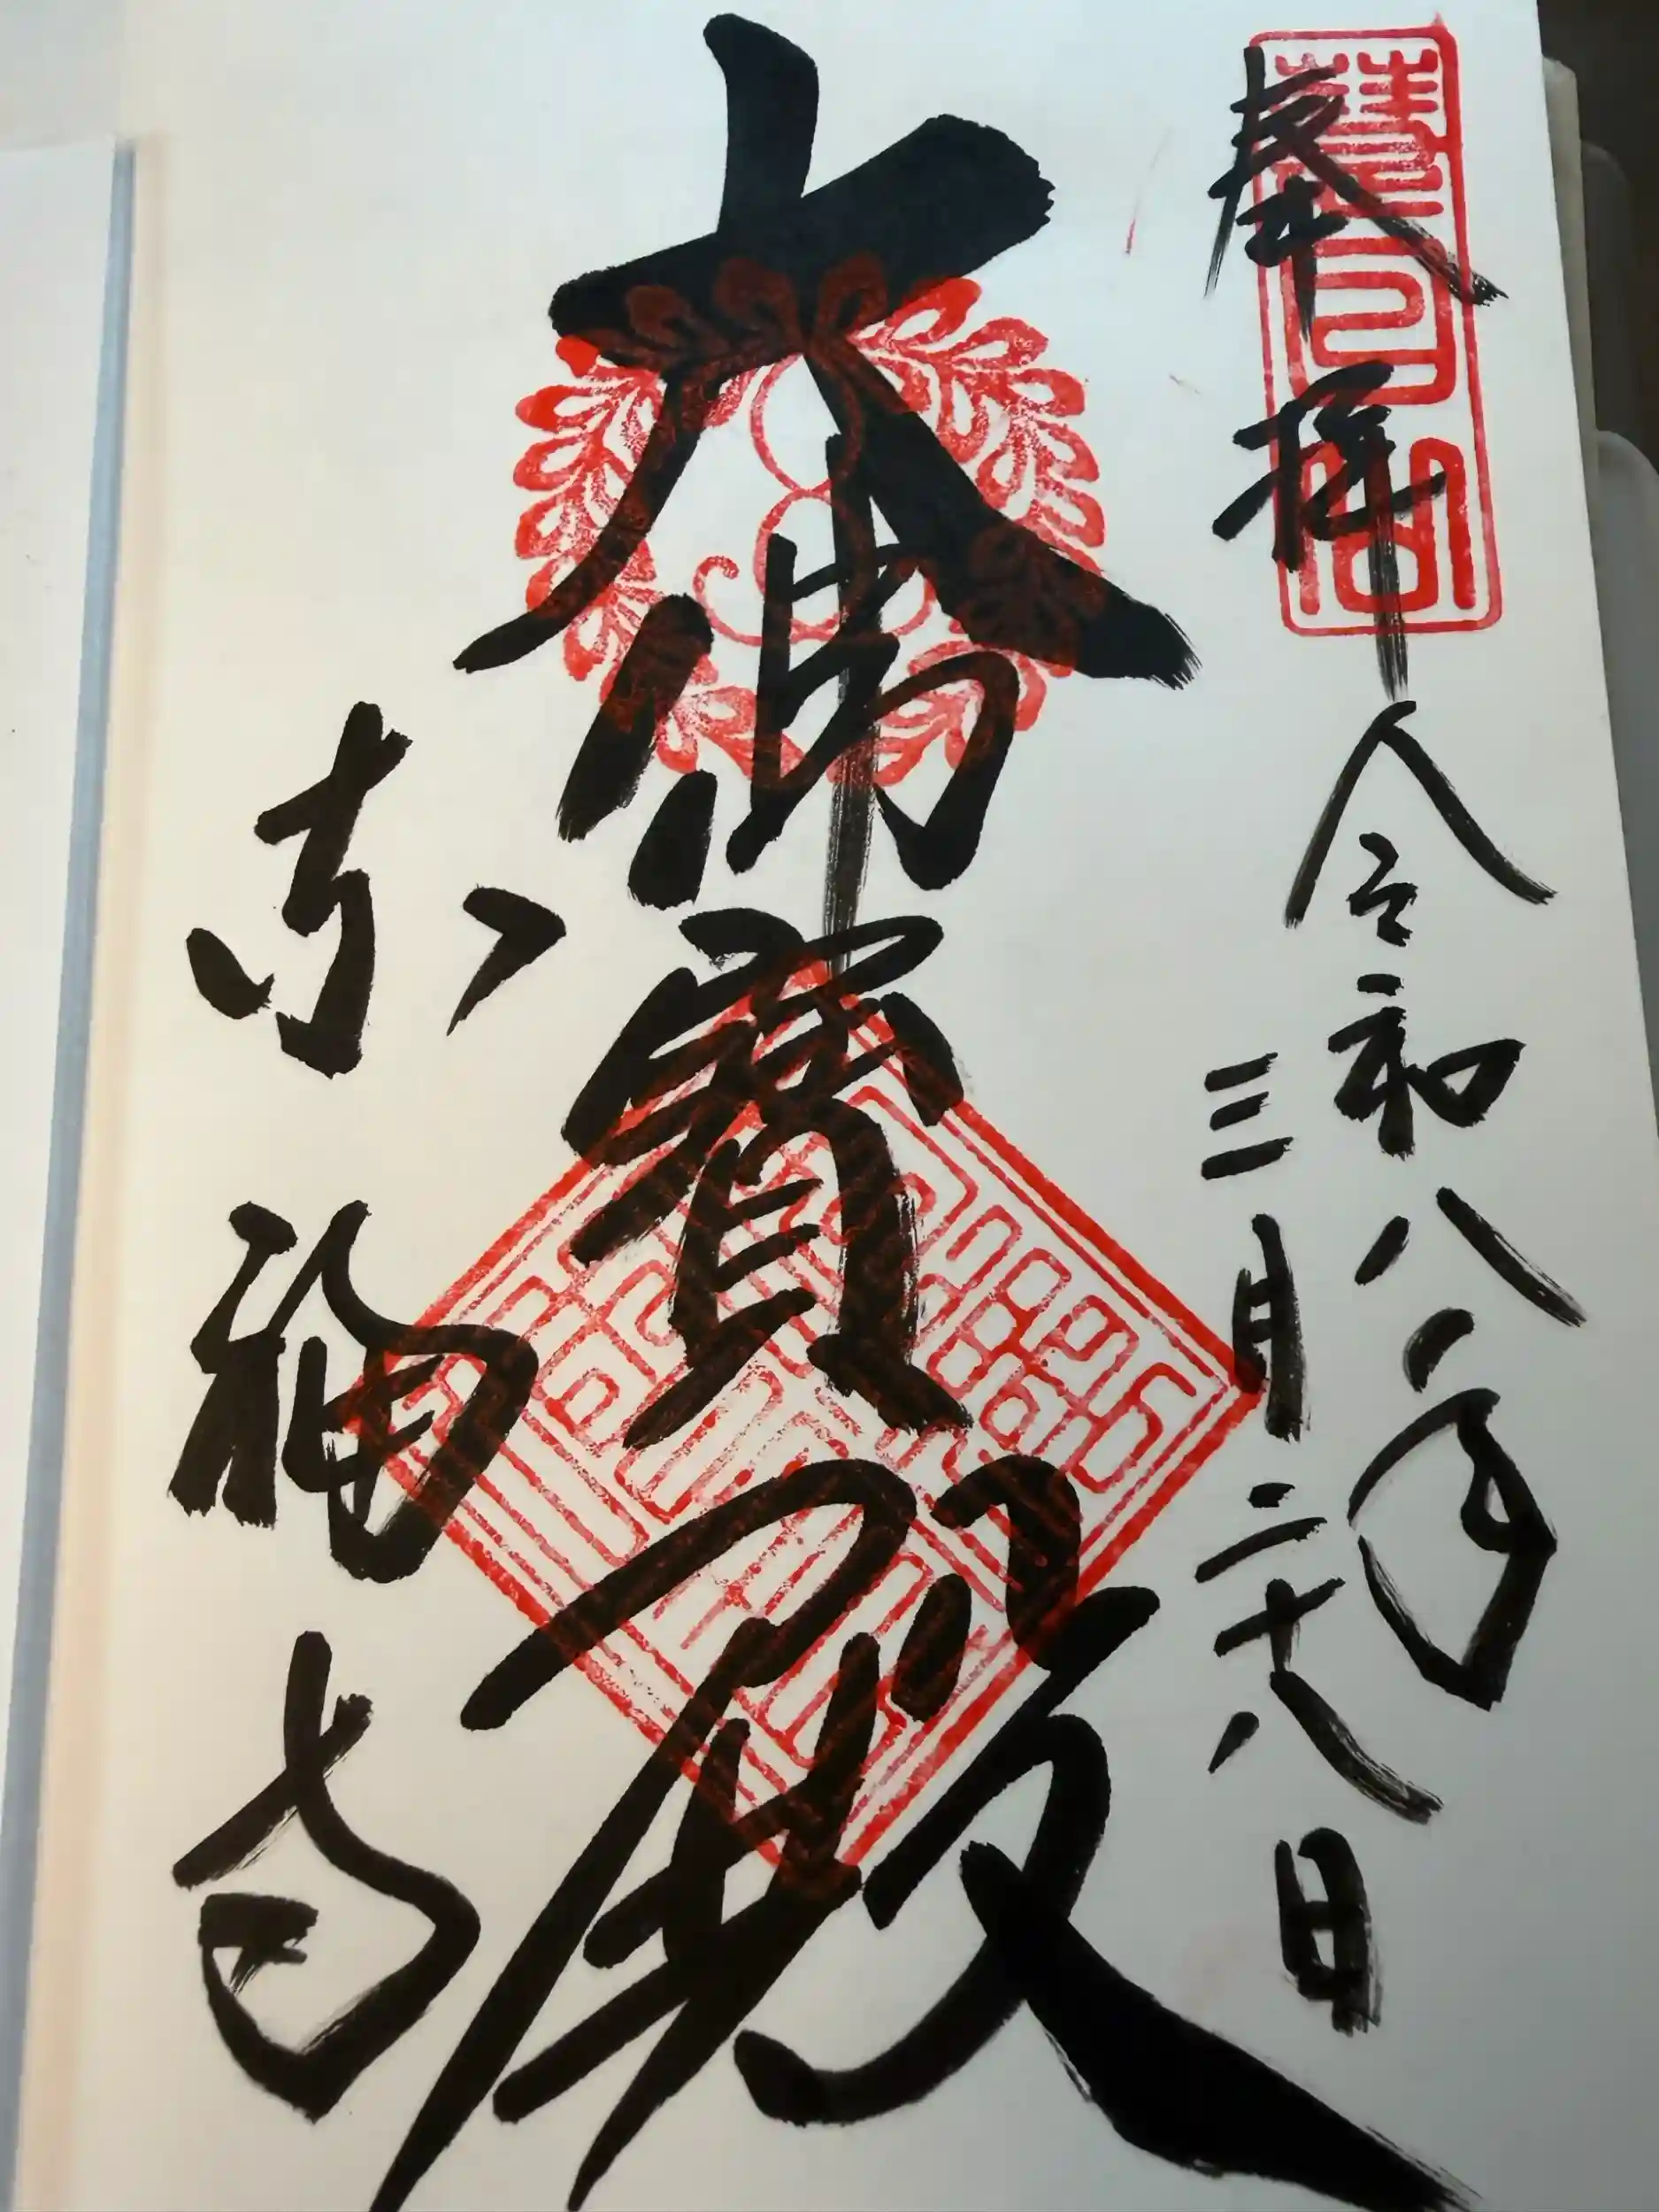 奉拝
令和八年
三月二十八日
大佛寶殿
東福寺